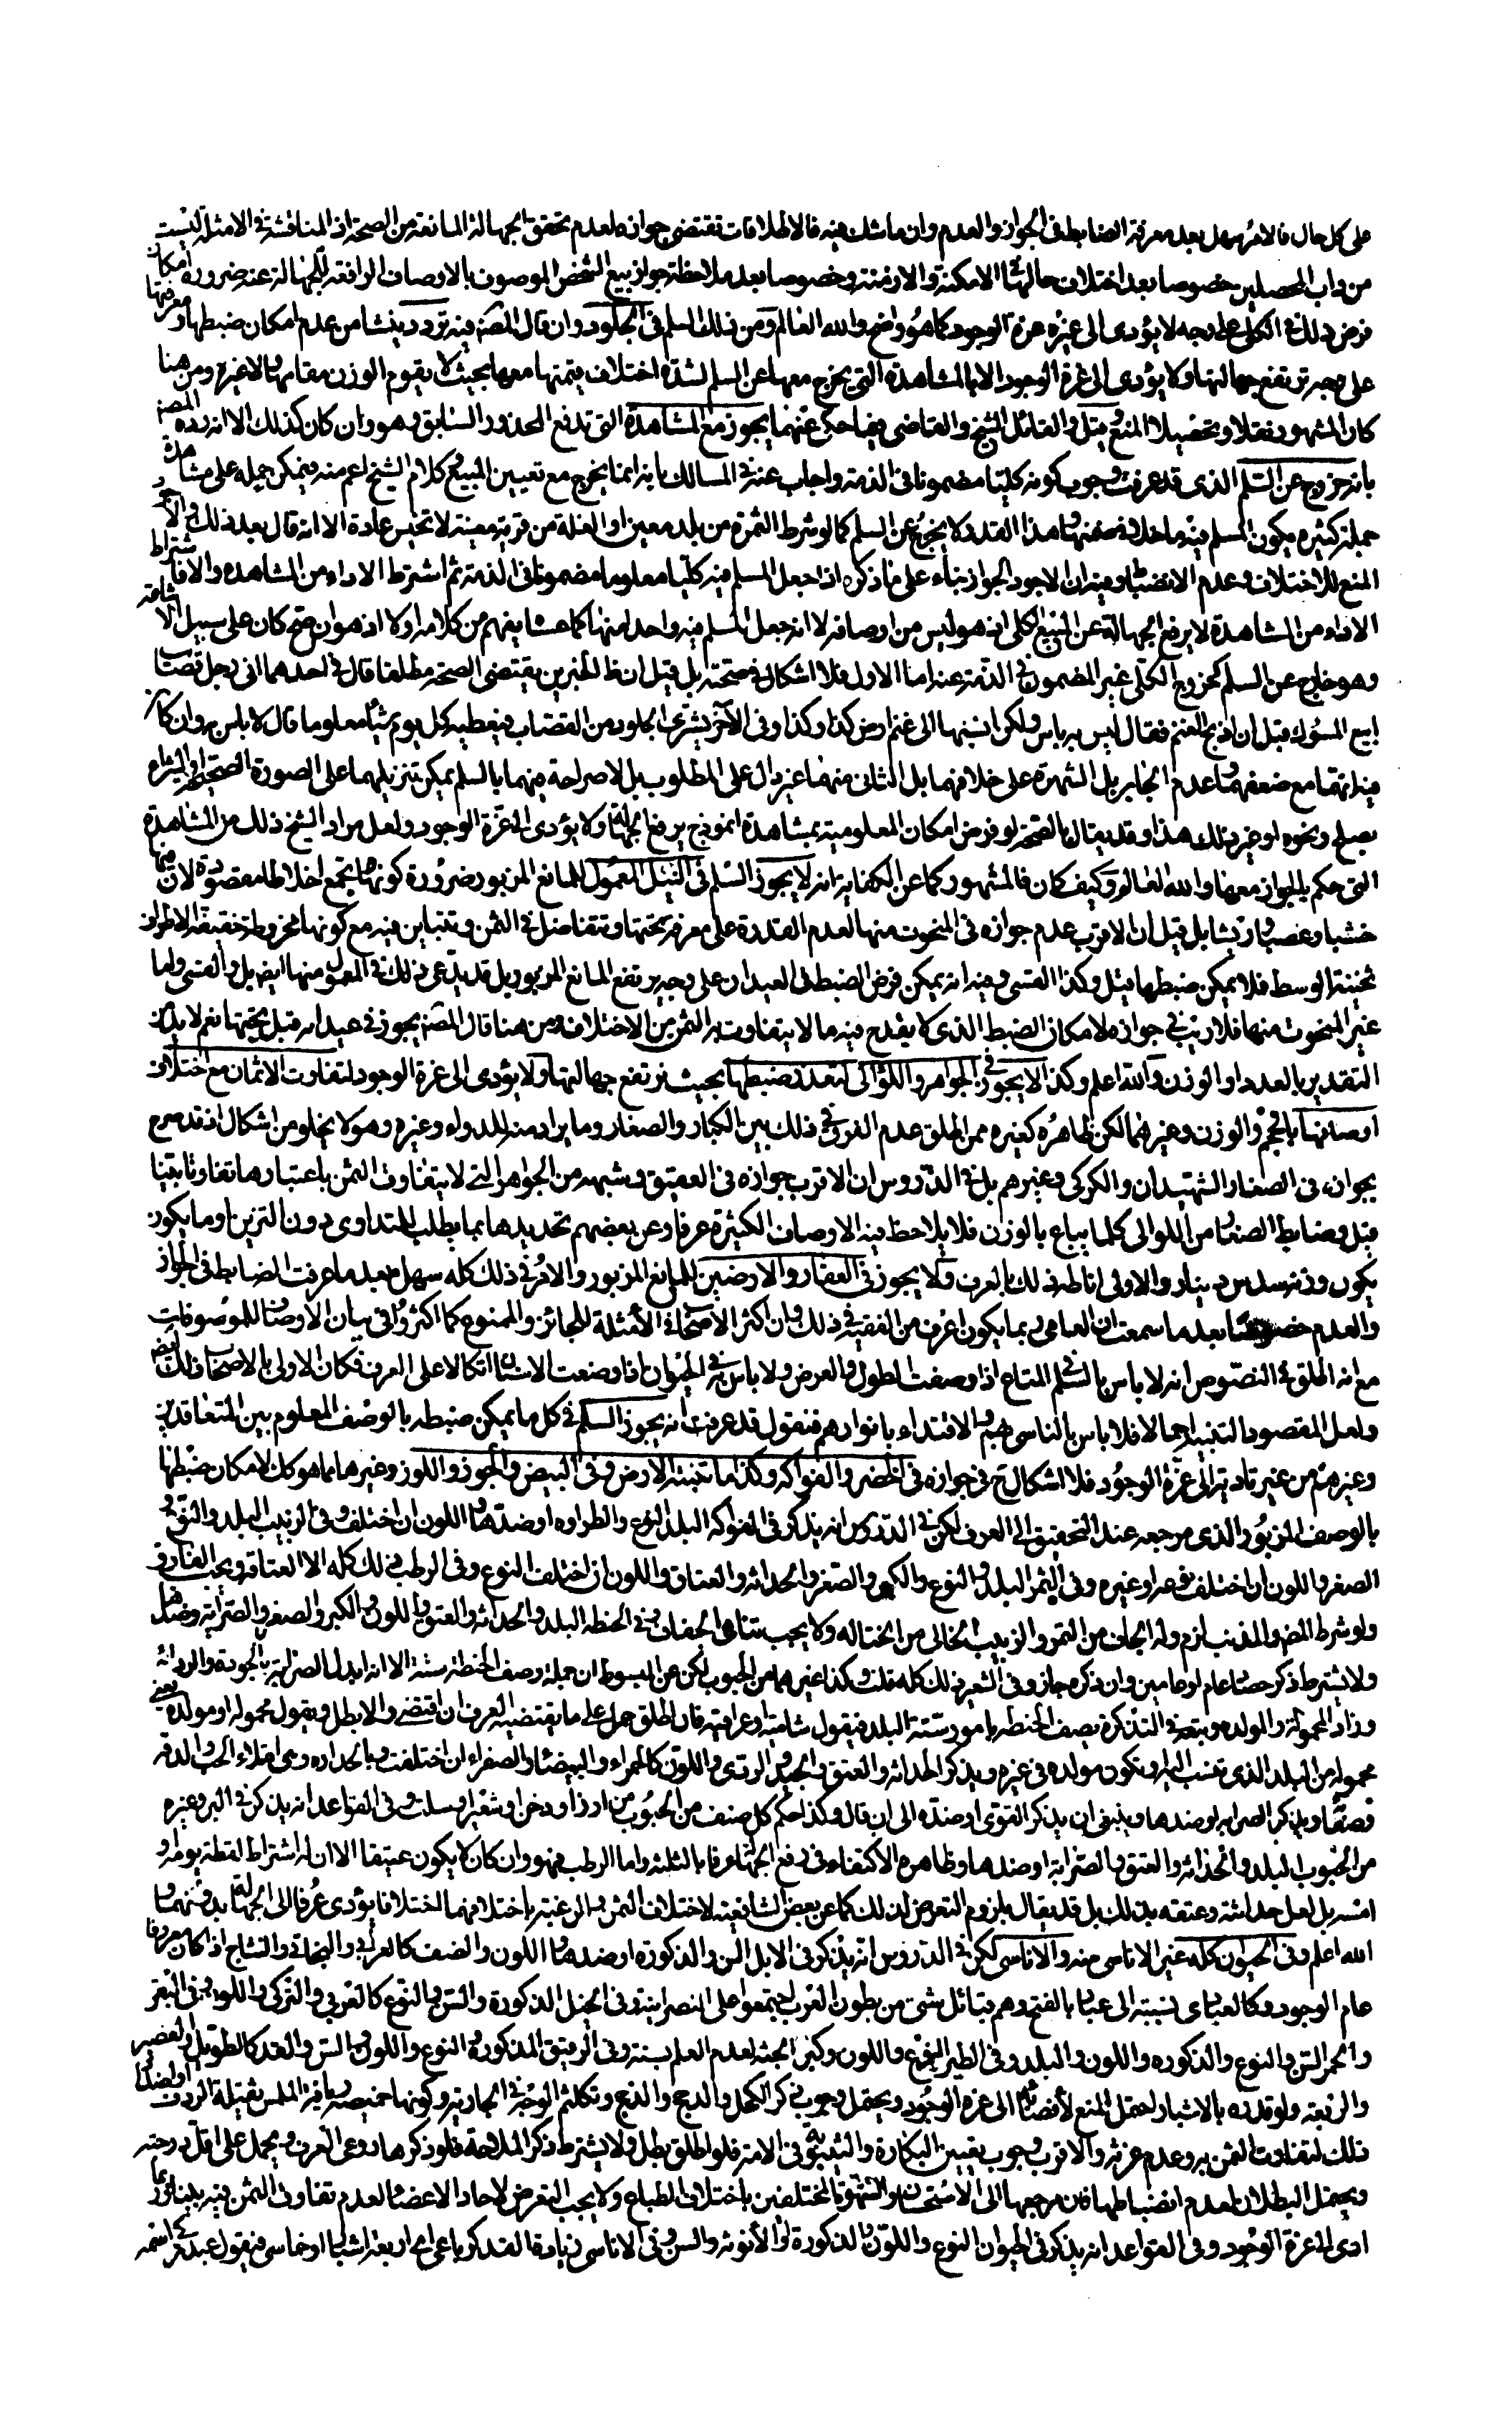 على كل حال فالامر سهل بعد معرفة الضابط فى الجواز والعدم وان ما شك فيه فالاطلاقات تقتضى جوازه لعدم تحقق الجهالة المانعة من الصحة اذ المناقشة فى الامثلة ليست
من داب المحصلين خصوصا بعد اختلاف حالها فى الامكنة والازمنة وخصوصا بعد ملاحظة جواز بيع الشخص الموصوف بالاوصاف الرافعة للجهالة عنه ضرورة امكان
فرض ذلك فى الكلى على وجه لا يؤدى الى عزة الوجود كما هو واضح والله العالم ومن ذلك السلم فى الجلود وان قال المصنف فيه تردد ينشا من عدم امكان ضبطها ومعرفتها
على وجه ترتفع جهالتها ولا يؤدى الى عزة الوجود الا بالمشاهدة التى يخرج معها عن السلم لشدة اختلاف معها بحيث لا يقوم الوزن مقامها ولا غيره ومن هنا
كان المشهور نقلا وتحصيلا المنع وقيل والقائل الشيخ والقاضى فيما حكى عنهما يجوز مع المشاهدة التى تدفع المحذور السابق وهو وان كان كذلك الا انه رده المصنف
بانه خروج عن السلم الذى قد عرفت وجوب كونه كليا مضمونا فى الذمة واجاب عنه فى المسالك بانه انما يخرج مع تعيين المبيع وكلام الشيخ اعم منه فيمكن حمله على مشاهدة
جملة كثيرة يكون المسلم فيه داخلا فى ضمنها وهذا القدر لا يخرج عن السلم كما لو شرط الثمرة من بلد معين او الغلة من قرية معينة لا تخيس عادة الا انه قال بعد ذلك والاجود
المنع للاختلاف وعدم الانضباط وفيه ان الاجود الجواز بناء على ما ذكره اذا جعل المسلم فيه كليا معلوما مضمونا فى الذمة ثم اشترط الاداء من المشاهدة والا فاشتراط
الاداء من المشاهدة لا يرفع الجهالة عن المبيع الكلى اذ هو ليس من اوصافه لا انه جعل المسلم فيه واحدا منها كما عساه يفهم من كلامه اولا اذ هو ان صح كان على سبيل الاشاعة
وهو خارج عن السلم كخروج الكلى غير المضمون فى الذمة عنه اما الاول فلا اشكال فى صحته بل قيل ان ظ الخبرين يقتضى الصحة مطلقا قال فى احدهما انى رجل قصاب
ابيع المسوك قبل ان اذبح الغنم فقال ليس به باس ولكن انسبها الى غنم ارض كذا وكذا وفى الآخر يشترى الجلود من القصاب فيعطيه كل يوم شيئا معلوما قال لا باس به وان كان
فيه انهما مع ضعفهما وعدم الجابر بل الشهرة على خلافهما بل الثانى منهما غير دال على المطلوب بل لا صراحة فيهما بالسلم يمكن تنزيلهما على الصورة الصحيحة او الشراء
بصلح ونحوه او غير ذلك هذا وقد يقال بالصحة لو فرض امكان المعلومية بمشاهدة انموذج يرفع الجهالة ولا يؤدى الى عزة الوجود ولعل مراد الشيخ ذلك من المشاهدة
التى حكم بالجواز معها والله العالم وكيف كان فالمشهور كما عن الكفاية انه لا يجوز السلم فى النبل المعمول للمانع المزبور ضرورة كونها تجمع اخلاطا مقصودة لان فيها
خشبا وعصبا وريشا بل قيل ان الاقرب عدم جوازه فى المنحوت منها لعدم القدرة على معرفة نحتها وتتفاضل فى الثمن وتتباين فيه مع كونها مخروطة خفيفة الاطراف
ثخينة الوسط فلا يمكن ضبطها قيل وكذا القسى وفيه انه يمكن فرض الضبط فى العيدان على وجه يرتفع المانع المزبور بل قد يدعى ذلك فى المعمول منها ايضا بل والقسى واما
غير المنحوت منها فلا ريب فى جوازه لامكان الضبط الذى لا يقدح فيه ما لا يتفاوت به الثمن من الاختلاف ومن هنا قال المصنف يجوز فى عيدانه قبل نحتها نعم لا بد من
التقدير بالعدد او الوزن والله اعلم وكذا لا يجوز فى الجواهر واللؤالى لتعذر ضبطها بحيث ترتفع جهالتها ولا يؤدى الى عزة الوجود لتفاوت الاثمان مع اختلاف
اوصافها بالحجم والوزن وغيرهما لكن ظاهره كغيره ممن اطلق عدم الفرق فى ذلك بين الكبار والصغار وما يراد منه للدواء وغيره وهو لا يخلو من اشكال اذ قد صرح
بجوازه فى الصغار الشهيدان والكركى وغيرهم بل فى الدروس ان الاقرب جوازه فى العقيق وشبهه من الجواهر التى لا يتفاوت الثمن باعتبارها تفاوتا بينا
قيل وضابط الصغار من اللوالى كلما يباع بالوزن فلا يلاحظ فيه الاوصاف الكثيرة عرفا وعن بعضهم تحديدها بما يطلب للتداوى دون التزين او ما يكون
يكون وزنه سدس دينار والاولى اناطة ذلك بالعرف ولا يجوز فى العقار والارضين للمانع المزبور والامر فى ذلك كله سهل بعد ما عرفت الضابط فى الجواز
والعدم خصوصا بعد ما سمعت ان العامى ربما يكون اعرف من الفقيه فى ذلك وان اكثر الاصحاب فى الامثلة للجائز والممنوع كما اكثروا فى بيان الاوصاف للموصوفات
مع انه اطلق فى النصوص انه لا باس بالسلم فى المتاع اذا وصفت الطول والعرض ولا باس به فى الحيوان اذا وصفت الاسنان اتكالا على العرف فكان الاولى بالاصحاب ذلك ايضا
ولعل المقصود التنبيه اجمالا فلا باس بالتاسى بهم والاقتداء بانوارهم فنقول قد عرفت انه يجوز السلم فى كل ما يمكن ضبطه بالوصف المعلوم بين المتعاقدين
وغيرهم من غير تادية الى عزة الوجود فلا اشكال ح فى جوازه فى الخضر والفواكه وكذا ما تنبته الارض وفى البيض والجوز واللوز وغيرها مما هو كك لامكان ضبطها
بالوصف المزبور الذى مرجعه عند التحقيق الى العرف لكن فى الدروس انه يذكر فى الفواكه البلد والنوع والطراوة او ضدها واللون ان اختلف وفى الزبيب البلد والنوع و
الصغر واللون ان اختلف نوعه او غيره وفى التمر البلد والنوع والكبر والصغر والحداثة والعتاقة واللون ان اختلف النوع وفى الرطب ذلك كله الا العتاقة ويجب
ولو شرط المنصف والمذنب لزم وله الجاف من التمر والزبيب الخالى من الحثالة ولا يجب تناهى الجفاف وفى الحنطة البلد والحداثة والعتق واللون والكبر والصغر والصرابة وضدها
ولا يشترط ذكر حصاد عام او عامين وان ذكره جاز وفى الشعير ذلك كله قلت وكذا غيرهما من الحبوب لكن عن المبسوط ان جملة وصف الحنطة ستة الا انه ابدل الصرابة بالجودة والرداءة
وزاد المحمولة والمولدة وتبعه فى التذكرة يصف الحنطة بامور ستة البلد فيقول شامية او عراقية فان اطلق حمل على ما يقتضيه العرف ان اقتضى والا بطل ويقول محمولة او مولدة يعنى
محمولة من البلد الذى تنسب اليه او تكون مولدة فى غيره ويذكر الحداثة والعتق والجيد والردى واللون كالحمراء والبيضاء والصفراء ان اختلفت بها والحدارة وهى امتلاء الحب والدقة
وصفاتها ويذكر الصرابة او ضدها وينبغى ان يذكر القوى او ضده الى ان قال وكذا حكم كل صنف من الحبوب من ارز او دخن او شعير او سلت وفى القواعد انه يذكر فى البر وغيره
من الحبوب البلد والحداثة والعتق والصرابة او ضدها وظاهره الاكتفاء فى رفع الجهالة عرفا بالثلثة واما الرطب فهو وان كان لا يكون عتيقا الا ان له اشتراط لقطة يومه او
امسه بل لعل حداثته وعتقه بذلك بل قد يقال بلزوم التعرض لذلك كما عن بعض الشافعية لاختلاف الثمن والرغبة باختلافهما اختلافا يؤدى عرفا الى الجهالة بدونهما و
الله اعلم وفى الحيوان كله غير الاناسى منه والاناسى لكن فى الدروس انه يذكر فى الابل السن والذكورة او ضدها واللون والصنف كالعرابى والبخاتى والنتاج اذا كان معروفا
عام الوجود وكالعبادى نسبته الى عباد بالفتح وهم قبائل شتى من بطون العرب اجتمعوا على النصرانية وفى الخيل الذكورة والسن والنوع كالعربى والتركى واللون وفى البقر
والحمر السن والنوع والذكورة واللون والبلد وفى الطير النوع واللون وكبر الجثة لعدم العلم بسنه وفى الرقيق الذكورة والنوع واللون والسن والقد كالطويل والقصير
والربعة ولو قدره بالاشبار احتمل المنع لافضائه الى عزة الوجود ويحتمل وجوب ذكر الكحل والدعج والزجج وتكلثم الوجه فى الجارية وكونها خميصة ريانة الملمس ثقيلة الردف او اضداد
ذلك لتفاوت الثمن به وعدم عزته والاقرب وجوب تعيين البكارة والثيوبة فى الامة فلو اطلق بطل ولا يشترط ذكر الملاحة فلو ذكرها روعى العرف ويحمل على اقل درجة
ويحتمل البطلان لعدم انضباطها فان مرجعها الى الاستحسان والشهوة المختلفين باختلاف الطباع ولا يجب التعرض لاحاد الاعضاء لعدم تفاوت الثمن فيه بينا وربما
ادى الى عزة الوجود وفى القواعد انه يذكر فى الحيوان النوع واللون والذكورة او الانوثة والسن وفى الاناسى زيادة القد كرباعى اى اربعة اشبار او خماسى فيقول عبد